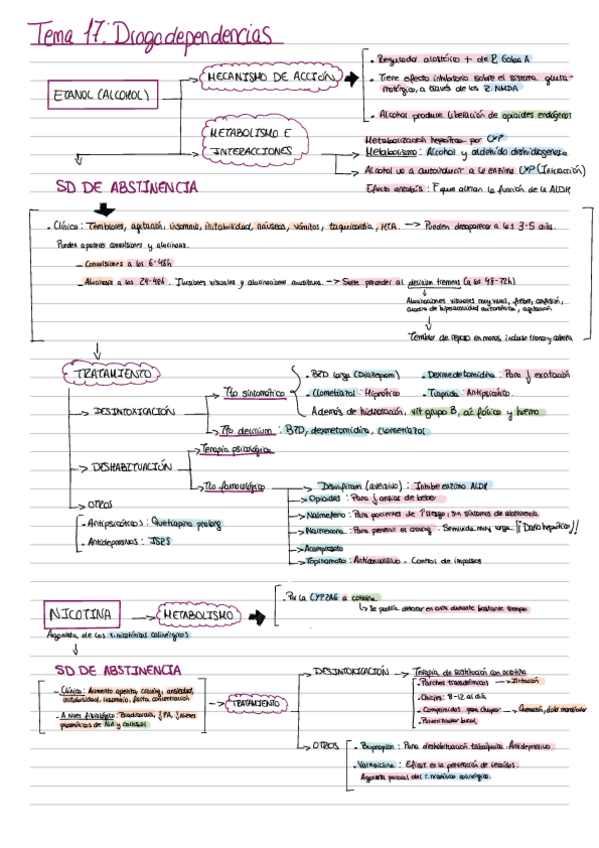 Tema 17: Drogodependencias
ETANOL (ALCOHOL)
MECANISMO DE ACCIÓN
- Regulador alostérico + de R. Gaba A
- Tiene efecto inhibitorio sobre el sistema gluta-
matérgico, a través de los R. NMDA
- Alcohol produce liberación de opioides endógenos
METABOLISMO E
INTERACCIONES
Metabolización hepática por CYP
Metabolismo: Alcohol y aldehído deshidrogenasa
Alcohol va a autoinducir a la enzima CYP (Interacción)
Efecto antabús: F que alteran la función de la ALDH
SD DE ABSTINENCIA
- Clínica: Temblores, agitación, insomnio, irritabilidad, náuseas, vómitos, taquicardia, HTA. → Pueden desaparecer a los 3-5 días.
Pueden aparecer convulsiones y alucinosis.
- Convulsiones a las 6-48h
- Alucinosis a las 24-48h. Ilusiones visuales y alucinaciones auditivas. → Suele preceder al delirium tremens (a las 48-72h)
Alucinaciones visuales muy vivas, fiebre, confusión,
cuadro de hiperactividad autonómica, agitación
Temblor de reposo en manos, incluso tronco y cabeza
TRATAMIENTO
→ DESINTOXICACIÓN
Tto sintomático
- BZD larga (Diazepam)
- Dexmedetomidina: Para ↓ excitación
- Clometiazol: Hipnótico
- Tiaprida: Antipsicótico
Además de hidratación, vit grupo B, ác fólico y hierro
Tto delirium: BZD, dexmetomidina, clometiazol
→ DESHABITUACIÓN
Terapia psicológica
Tto farmacológico
Disulfiram (aversivo): Inhibe enzima ALDH
Opioides: Para ↓ ansias de beber
Nalmefeno: Para pacientes de ↑ riesgo, sin síntomas de abstinencia
Naltrexona: Para prevenir el craving. Semivida muy larga ¡¡Daño hepático!!
Acamprosato
Topiramato: Anticonvulsivo. Control de impulsos
→ OTROS
- Antipsicóticos: Quetiapina prolong
- Antidepresivos: ISRS
NICOTINA
METABOLISMO
- Por la CYP2A6 a cotinina
↳ Se podría detectar en orina durante bastante tiempo
Agonista de los r. nicotínicos colinérgicos
SD DE ABSTINENCIA
- Clínica: Aumento apetito, craving, ansiedad,
irritabilidad, insomnio, falta concentración
- A nivel fisiológico: Bradicardia, ↓PA, ↓ niveles
plasmáticos de NA y cortisol
TRATAMIENTO
→ DESINTOXICACIÓN → Terapia de sustitución con nicotina
- Parches transdérmicos → Irritación
- Chicles: 8-12 al día
- Comprimidos para chupar → Quemazón, dolor mandibular
- Pulverizador bucal
→ OTROS
- Bupropion: Para deshabituación tabáquica. Antidepresivo
- Vareniclina: Eficaz en la prevención de recaídas.
Agonista parcial del r. nicotínico colinérgico.